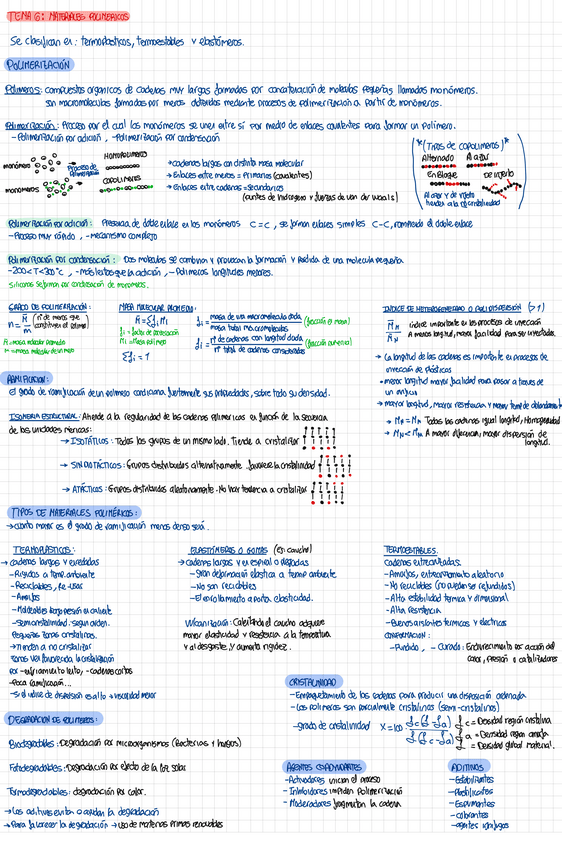 TEMA 6: MATERIALES POLIMERICOS
Se clasifican en: termoplasticos, termoestables y elastómeros.
POLIMERIZACIÓN
Polimeros: compuestos organicos de cadenas muy largas formadas por concatenación de moleculas pequeñas llamadas monómeros.
son macromoleculas formadas por meros obtenidas mediante procesos de polimerización a partir de monómeros.
Polimerización: Proceso por el cual los monómeros se unen entre sí por medio de enlaces covalentes para formar un Polímero.
- Polimerización por adición, - Polimerización por condensación
*(Tipos de copolimeros)*
Alternado Al azar
En Bloque De injerto
Al azar y de injerto
tienden a la no cristalinidad
monómeros Proceso de Polimerización HOMOPOLIMEROS
monómeros COPOLIMEROS
→ cadenas largas con distinta masa molecular
→ Enlaces entre meros = Primarios (covalentes)
→ Enlaces entre cadenas = Secundarios
(puentes de hidrogeno y fuerzas de van der waals)
Polimerización por adición: Presencia de doble enlace en los monómeros C=C, se forman enlaces simples C-C, rompiendo el doble enlace
- Proceso muy rápido, - mecanismo complejo
Polimerización por condensación: Dos moleculas se combinan y provocan la formación y perdida de una molecula pequeña
- 200<T<300°C, - más lentos que la adición, - Polimeros longitudes menores.
Siliconas se forman por condensación de monomeros.
GRADO DE POLIMERIZACIÓN:
n = M̄/m (nº de meros que constituyen el polimero)
M̄ = masa molecular promedio
m = masa molecular de un mero
MASA MOLECULAR PROMEDIO:
M̄ = Σfi Mi
fi = factor de ponderación
Mi = Masa polimero
Σfi = 1
fi = masa de una macromolecula dada / masa total macromoleculas (fracción en masa)
fi = nº de cadenas con longitud dada / nº total de cadenas consideradas (fracción numerica)
INDICE DE HETEROGENEIDAD O POLIDISPERSIÓN (>1)
índice importante en los procesos de inyección
A menor longitud, mayor facilidad para ser inyectados.
→ La longitud de las cadenas es importante en procesos de
inyección de plásticos
- menor longitud mayor facilidad para pasar a traves de
un orificio
→ mayor longitud, mayor resistencia y mayor temp de
→ Mn = Mm Todas las cadenas igual longitud, Homogeneidad
→ Mn < Mm A mayor diferencia, mayor dispersión de
longitud.
RAMIFICACION:
El grado de ramificación de un polimero condiciona fuertemente sus propiedades, sobre todo su densidad.
ISOMERIA ESTRUCTURAL: Atiende a la regularidad de las cadenas polimericas en función de la secuencia
de las unidades mericas:
→ ISOTÁCTICOS: Todos los grupos de un mismo lado. Tiende a cristalizar
→ SINDIOTÁCTICOS: Grupos distribuidos alternativamente. favorece la cristalinidad
→ ATÁCTICOS: Grupos distribuidos aleatoriamente. No hay tendencia a cristalizar
TIPOS DE MATERIALES POLIMÉRICOS:
→ cuanto mayor es el grado de ramificación menos denso será.
TERMOPLÁSTICOS:
→ cadenas largas y enredadas
- Rígidos a temp. ambiente
- Reciclables, Re-usar
- Amorfos
- Moldeables bajo presión en caliente
- Semicristalinidad: según orden.
Pequeñas zonas cristalinas.
→ Tienden a no cristalizar
zonas ven favorecida la cristalización
por - enfriamiento lento, - cadenas cortas
- Poca ramificación...
- Si el índice de dispersión es alto → viscosidad menor
ELASTÓMEROS O GOMAS (ej: caucho)
→ cadenas largas y en espiral o plegadas
- Gran deformación elastica a temp ambiente
- No son reciclables
- El enrollamiento aporta elasticidad.
Vulcanización: Calentando el caucho adquiere
mayor elasticidad y resistencia a la temperatura
y al desgaste, y aumenta rigidez.
TERMOESTABLES.
Cadenas entrecruzadas.
- Amorfos, entrecruzamiento aleatorio
- No reciclables (no pueden ser refundidos)
- Alta estabilidad termica y dimensional
- Alta resistencia
- Buenos aislantes termicos y electricos
CONFORMACIÓN:
- Fundido, - Curado: Endurecimiento por acción del
calor, presión o catalizadores
CRISTALINIDAD
- Empaquetamiento de las cadenas para producir una disposición ordenada
- Los polimeros son parcialmente cristalinos (semi-cristalinos)
- grado de cristalinidad
c = Densidad región cristalina
a = Densidad región amorfa
= Densidad global material.
DEGRADACION DE POLIMEROS:
Biodegradables: Degradación por microorganismos (Bacterias y hongos)
Fotodegradables: Degradación por efecto de la luz solar
Termodegradables: degradación por calor.
→ Los aditivos evitan o ayudan la degradación
→ Para favorecer la degradación → uso de materias primas renovables
AGENTES COADYUVANTES
- Activadores inician el proceso
- Inhibidores impiden Polimerización
- Moderadores fragmentan la cadena
ADITIVOS
- Estabilizantes
- Plastificantes
- Espumantes
- colorantes
- agentes ignífugos